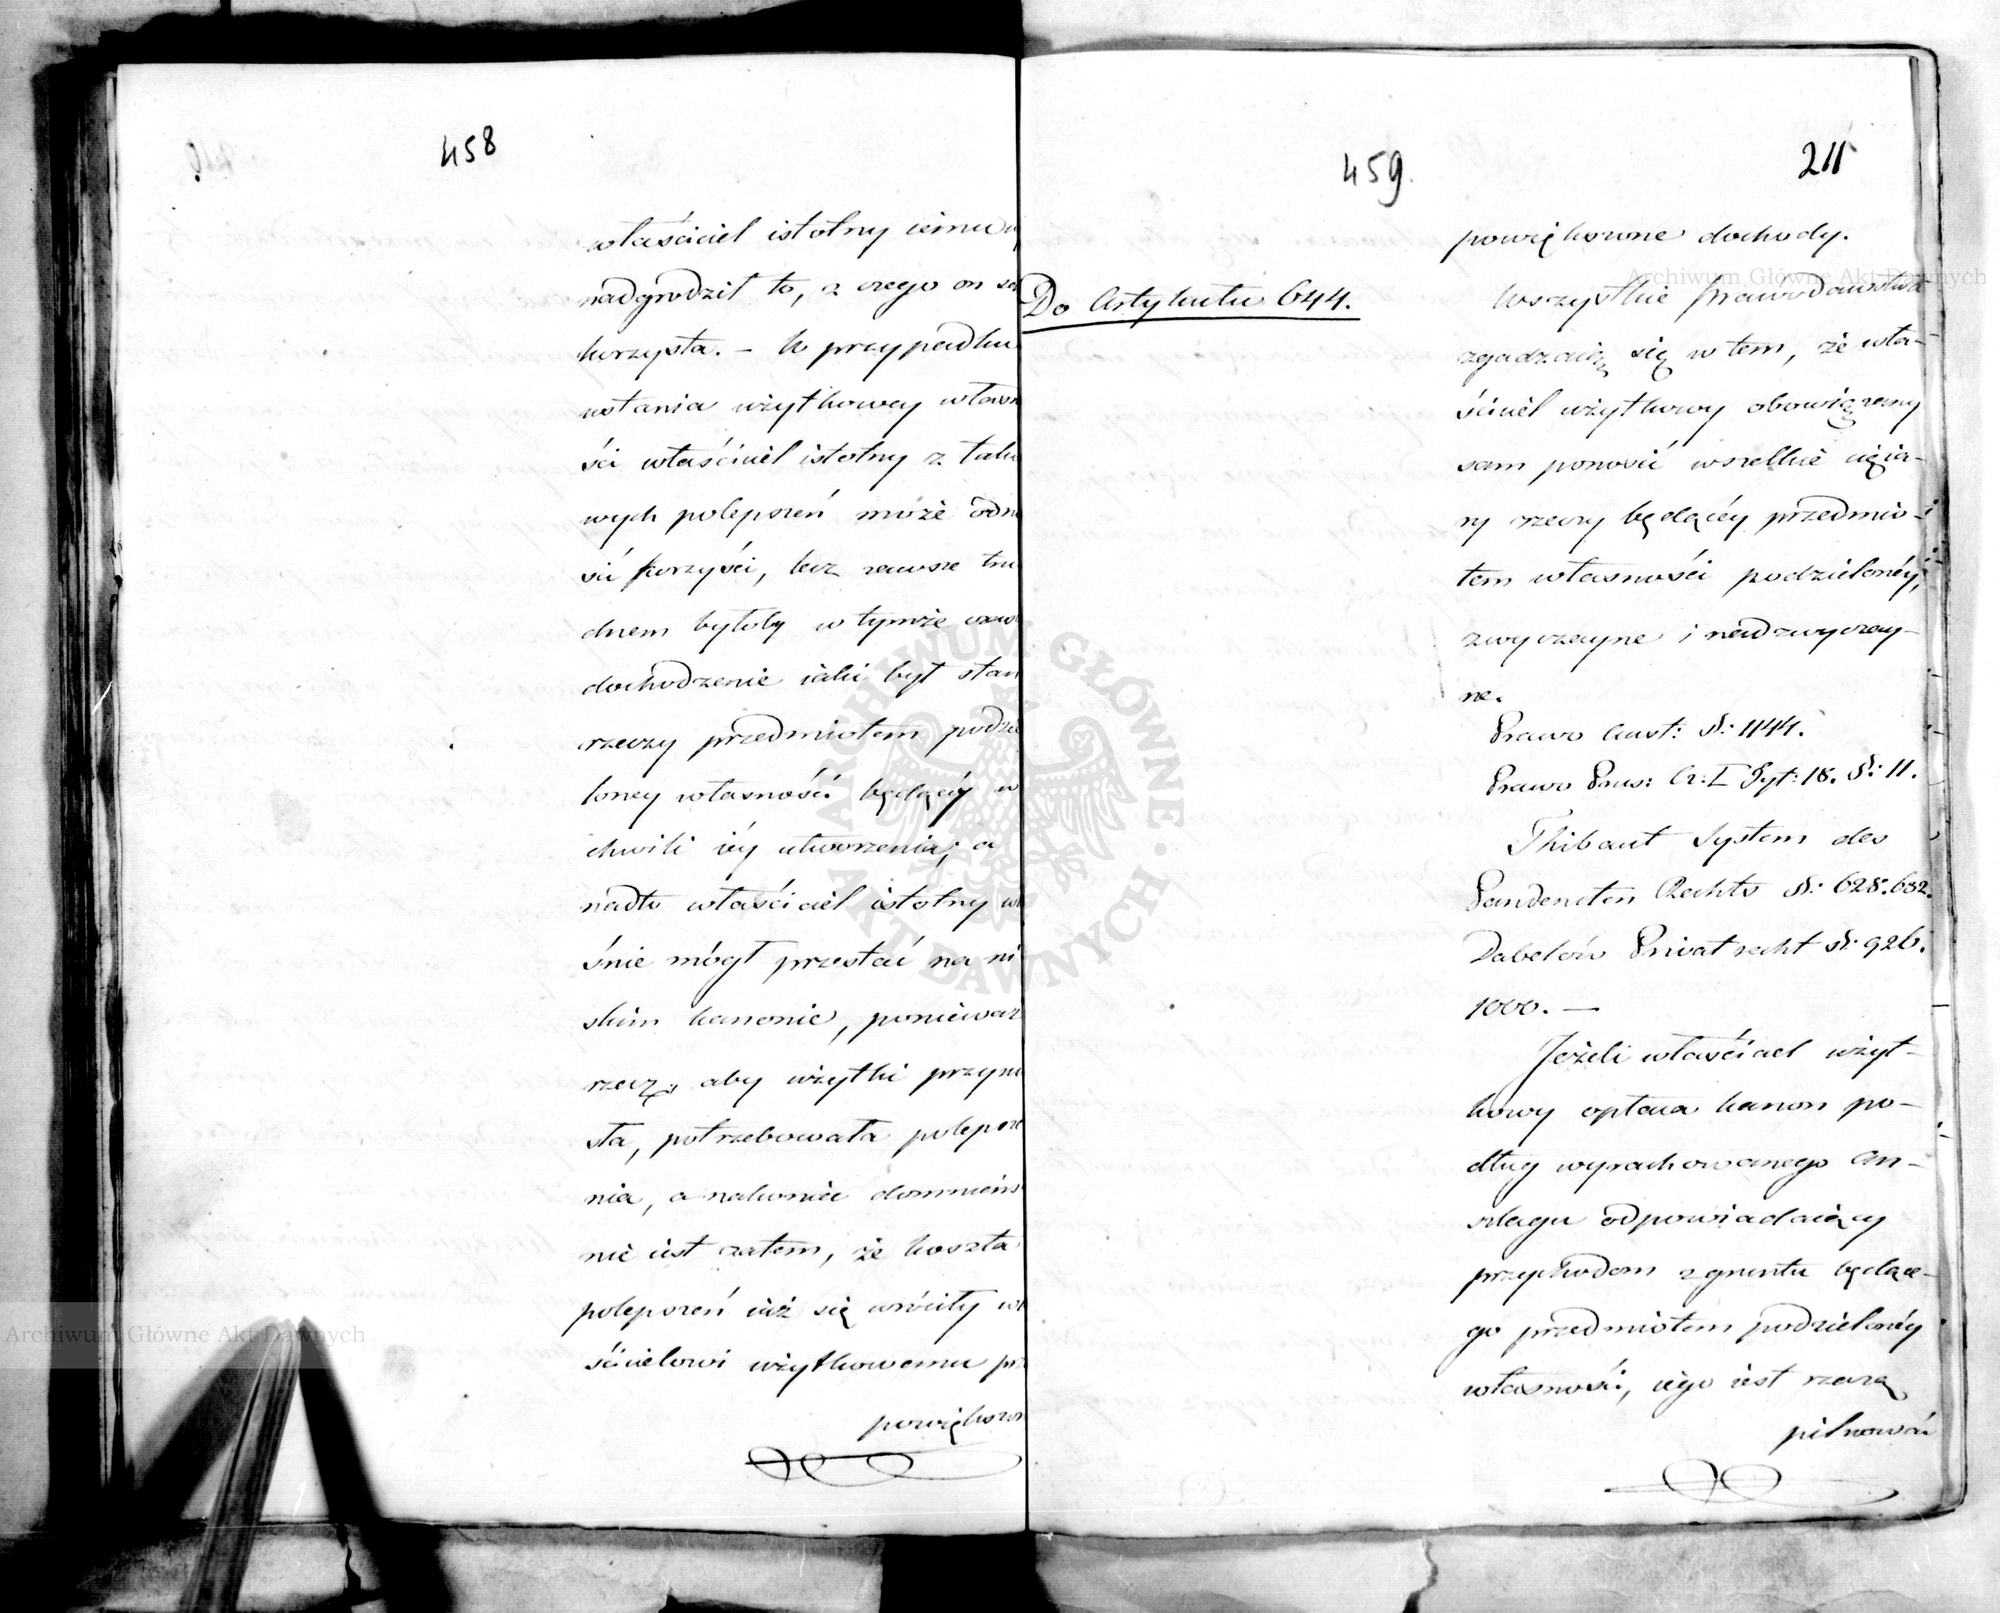 458
właściciel istotny iemu
nadgrodził to, z czego on
korzysta. – W przypadku
ustania użytkowey własn
ści właściciel istotny z tako
wych polepszeń może odno
sić korzyści, lecz zawsze tru
dnem byłoby w tymże czas
dochodzenie iaki był stan
rzeczy przedmiotem podzie
loney własności będącéy w
chwili iéy utworzenia; a
nadto właściciel istotny wł
śnie mógł przestać na ni
skim kanonie, ponieważ
rzecz, aby użytki przyno
sła, potrzebowała polepsze
nia, a nakoniec domniema
nie iest zatem, że koszta
polepszeń iuż się wróciły wł
ścicielowi użytkowemu prz
powiększon
459.
211
powiększone dochody.
Do Artykułu 644.
Wszystkie prawodawstwa
zgadzaią się w tem, że wła-
ściciel użytkowy obowiązany
sam ponosić wszelkie cięża-
ry rzeczy będącéy przedmio-
tem własności podzielonéy,
zwyczayne i nadzwyczay-
ne.
Prawo Aust: §: 1144.
Prawo Prus: Cz: I Tyt: 18. §: 11.
Thibaut System des
Pandencten Rechts §: 628. 632.
Dabelow Privatrecht §: 926.
1000. —
Jeżeli właściciel użyt-
kowy opłaca kanon po-
dług wyrachowanego An-
szlagu odpowiadaiący
przychodom z gruntu będące-
go przedmiotem podzielonéy
własności, iego iest rzeczą
pilnować
Archiwum Główne Akt Dawnych
Archiwum Główne Akt Dawnych
ARCHIWUM GŁÓWNE AKT DAWNYCH